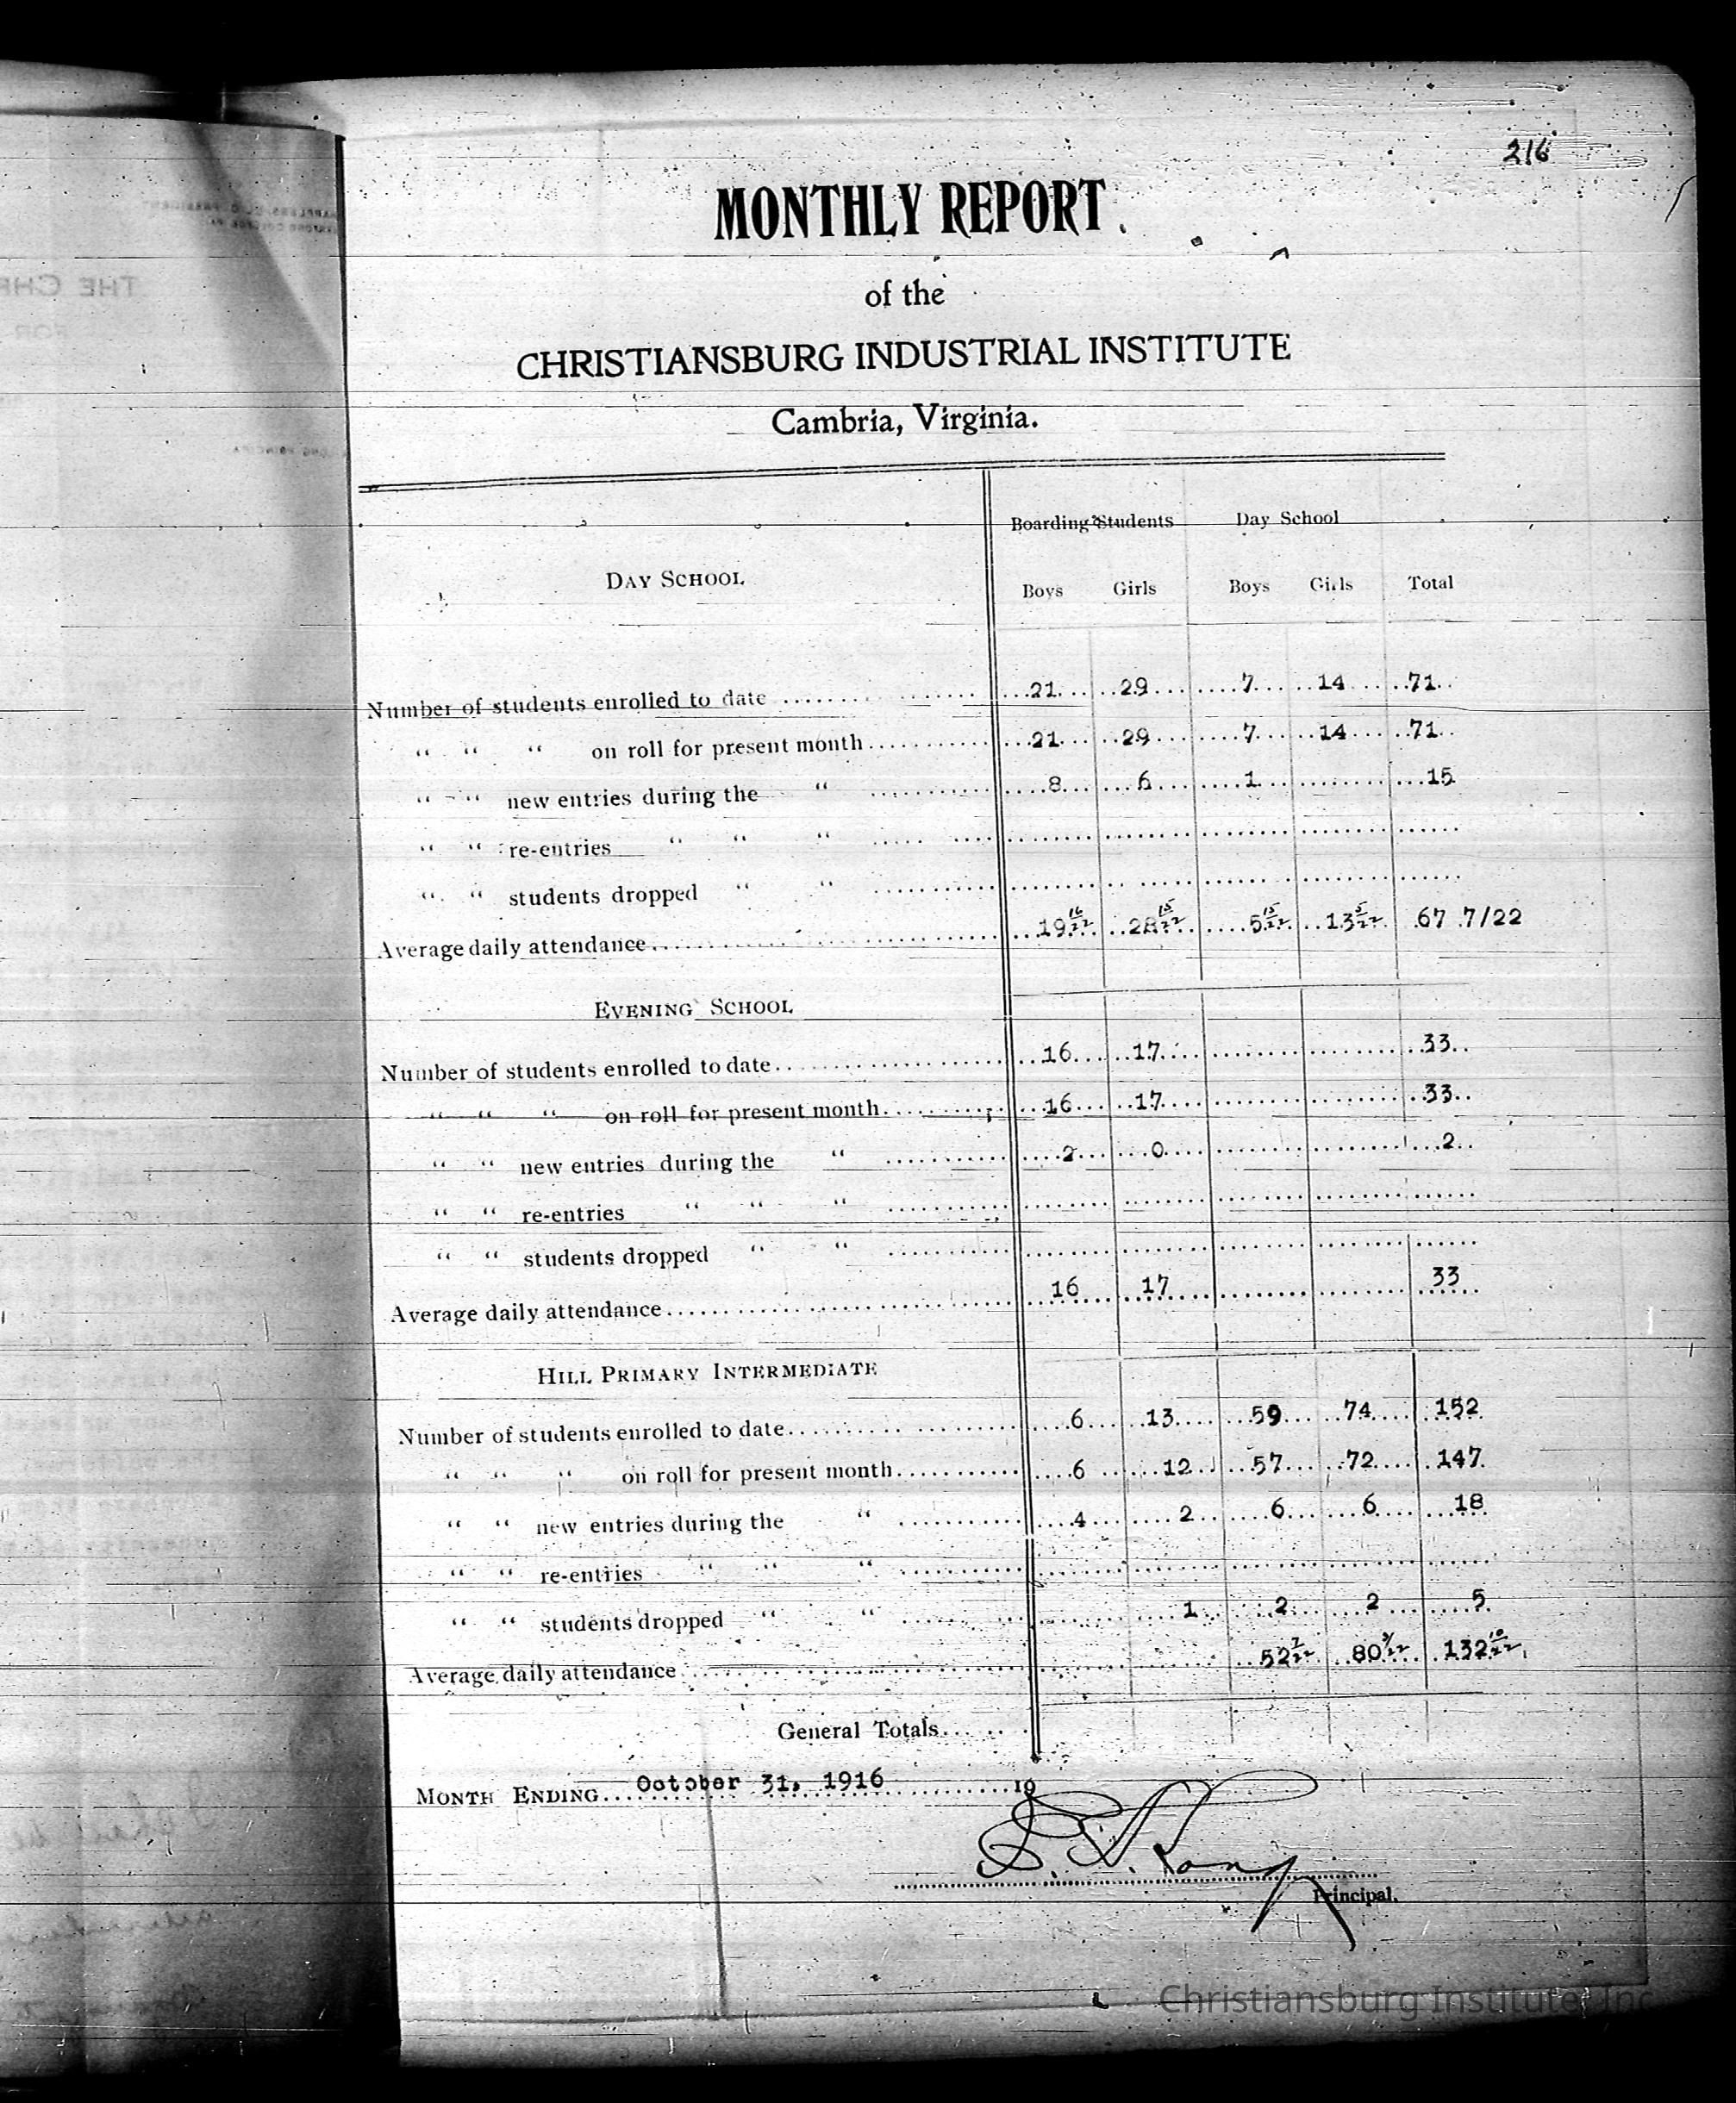 216
MONTHLY REPORT
of the
CHRISTIANSBURG INDUSTRIAL INSTITUTE
Cambria, Virginia.
Boarding Students Day School
DAY SCHOOL Boys Girls Boys Girls Total
Number of students enrolled to date 21 29 7 14 71
" " " on roll for present month 21 29 7 14 71
" " new entries during the " 8 6 1 15
" " re-entries " " "
" " students dropped " "
Average daily attendance 19 16/22 28 15/22 5 15/22 13 5/22 67 7/22
EVENING SCHOOL
Number of students enrolled to date 16 17 33
" " " on roll for present month 16 17 33
" " new entries during the " 2 0 2
" " re-entries " " "
" " students dropped " "
Average daily attendance 16 17 33
HILL PRIMARY INTERMEDIATE
Number of students enrolled to date 6 13 59 74 152
" " " on roll for present month 6 12 57 72 147
" " new entries during the " 4 2 6 6 18
" " re-entries " " "
" " students dropped " " 1 2 2 5
Average daily attendance 52 7/22 80 3/22 132 10/22
General Totals
MONTH ENDING October 31, 1916 19
Long
Principal.
Christiansburg Institute, Inc
THE CHR
FOR